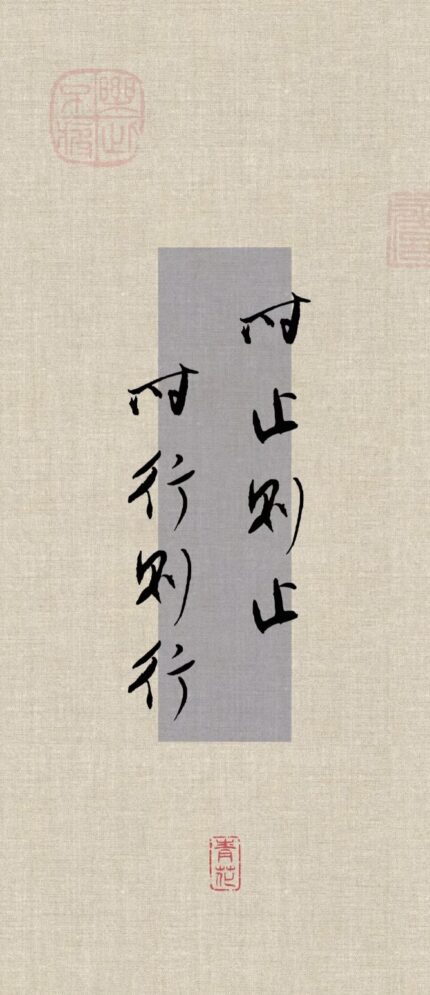 时止则止
时行则行
青花